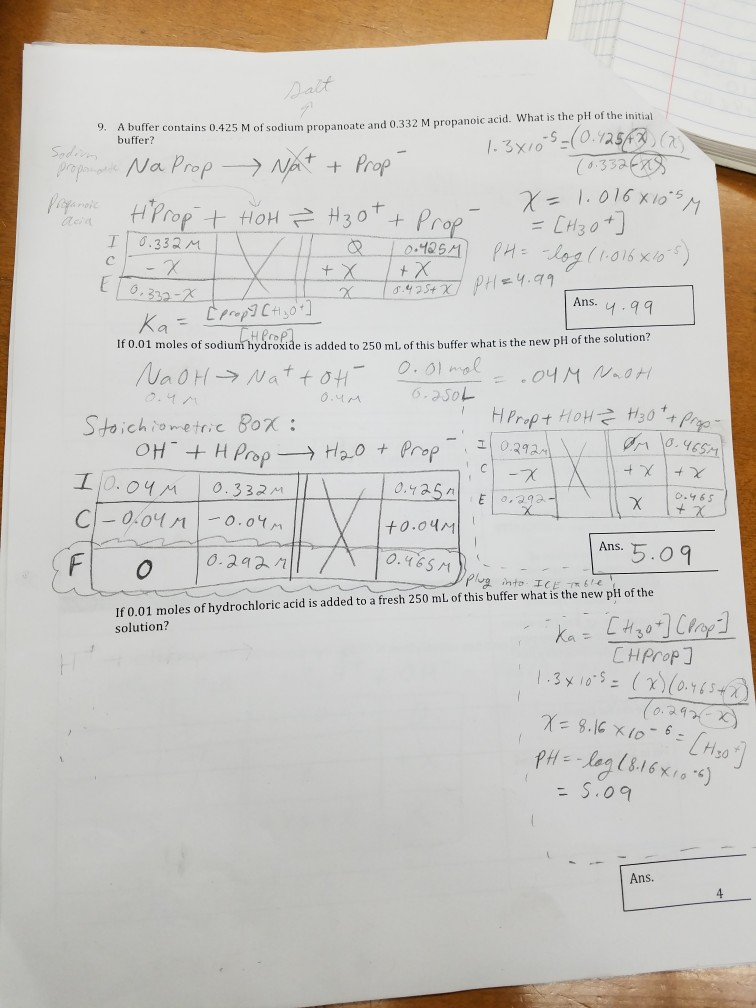 Salt
9. A buffer contains 0.425 M of sodium propanoate and 0.332 M propanoic acid. What is the pH of the initial
buffer?
1.3x10^-5 = (0.425+x)(x)
(0.332-x)
Sodium
propanoate
NaProp → Na+ + Prop-
X = 1.016 x10^-5 M
= [H3O+]
Propanoic
acid
H+Prop- + HOH ⇌ H3O+ + Prop-
PH = -log(1.016x10^-5)
I 0.332M 0 0.425M
C -X +X +X
PH=4.99
E 0.332-X X 0.425+X
Ans. 4.99
Ka = [Prop-][H3O+]
[HProp]
If 0.01 moles of sodium hydroxide is added to 250 mL of this buffer what is the new pH of the solution?
NaOH → Na+ + OH-
0.4M 0.4M
0.01 mol
0.250L
= .04M NaOH
Stoichiometric Box:
OH- + HProp → H2O + Prop-
I 0.04M 0.332M 0.425M
C -0.04M -0.04M +0.04M
F 0 0.292M 0.465M
Plug into ICE table!
HProp + HOH ⇌ H3O+ + Prop-
I 0.292M 0M 0.465M
C -X +X +X
E 0.292-X X 0.465+X
Ans. 5.09
If 0.01 moles of hydrochloric acid is added to a fresh 250 mL of this buffer what is the new pH of the
solution?
H+
Ka = [H3O+][Prop-]
[HProp]
1.3x10^-5 = (X)(0.465+X)
(0.292-X)
X = 8.16 x10^-6 = [H3O+]
PH = -log(8.16x10^-6)
= 5.09
Ans.
4